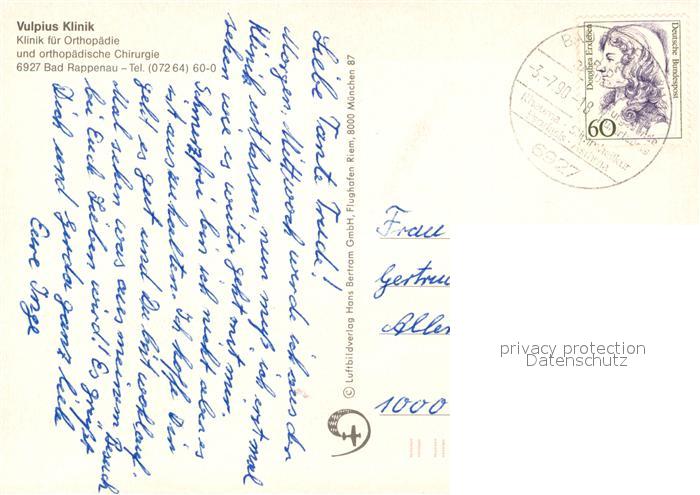 Vulpius Klinik
Klinik für Orthopädie
und orthopädische Chirurgie
6927 Bad Rappenau – Tel. (07264) 60-0
Liebe Tante Trude!
Morgen, Mittwoch werde ich aus der
Klinik entlassen, nun muß ich erstmal
sehen wie es weiter geht mit mir.
Schmerzfrei bin ich nicht aber es
ist auszuhalten. Ich hoffe Dir
geht es gut und Du bist wohlauf.
Mal sehen was aus meinem Besuch
bei Euch Lieben wird! Es grüßt
Dich und Gerda ganz lieb
Eure Inge
© Luftbildverlag Hans Bertram GmbH, Flughafen Riem, 8000 München 87
-3.-7.90-18
6927
Dorothea Erxleben
Deutsche Bundespost
60
Frau
Gertru
Aller
1000
privacy protection
Datenschutz